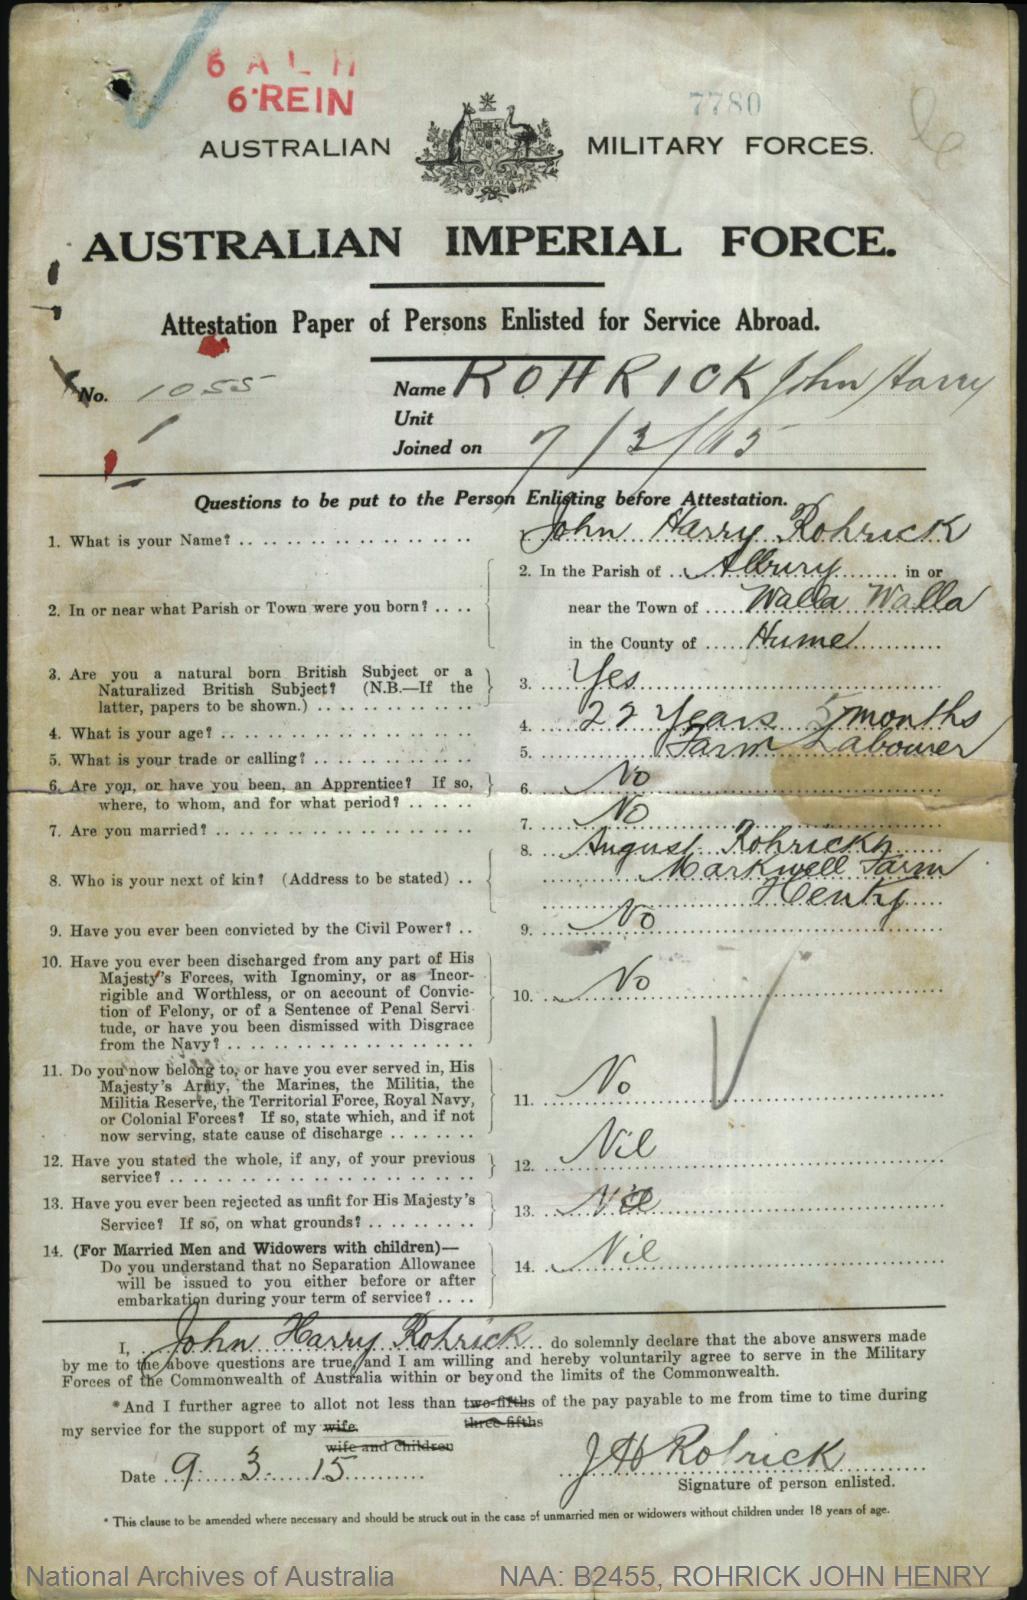 6 A L H
6 REIN
7780
AUSTRALIAN MILITARY FORCES.
AUSTRALIAN IMPERIAL FORCE.
Attestation Paper of Persons Enlisted for Service Abroad.
No. 1055 Name ROHRICK John Harry
Unit
Joined on 7/3/15
Questions to be put to the Person Enlisting before Attestation.
1. What is your Name? John Harry Rohrick
2. In or near what Parish or Town were you born?
2. In the Parish of Albury in or
near the Town of Walla Walla
in the County of Hume
3. Are you a natural born British Subject or a
Naturalized British Subject? (N.B.—If the
latter, papers to be shown.)
3. Yes
4. What is your age? 4. 22 Years 5 months
5. What is your trade or calling? 5. Farm Labourer
6. Are you, or have you been, an Apprentice? If so,
where, to whom, and for what period?
6. No
7. Are you married? 7. No
8. Who is your next of kin? (Address to be stated)
8. August Rohrick
Markwell Farm
Henty
9. Have you ever been convicted by the Civil Power? 9. No
10. Have you ever been discharged from any part of His
Majesty's Forces, with Ignominy, or as Incor-
rigible and Worthless, or on account of Convic-
tion of Felony, or of a Sentence of Penal Servi-
tude, or have you been dismissed with Disgrace
from the Navy?
10. No
11. Do you now belong to, or have you ever served in, His
Majesty's Army, the Marines, the Militia, the
Militia Reserve, the Territorial Force, Royal Navy,
or Colonial Forces? If so, state which, and if not
now serving, state cause of discharge
11. No
12. Have you stated the whole, if any, of your previous
service?
12. Nil
13. Have you ever been rejected as unfit for His Majesty's
Service? If so, on what grounds?
13.
14. (For Married Men and Widowers with children)—
Do you understand that no Separation Allowance
will be issued to you either before or after
embarkation during your term of service?
14. Nil
I, John Harry Rohrick do solemnly declare that the above answers made
by me to the above questions are true, and I am willing and hereby voluntarily agree to serve in the Military
Forces of the Commonwealth of Australia within or beyond the limits of the Commonwealth.
*And I further agree to allot not less than two-fifths of the pay payable to me from time to time during
three-fifths
my service for the support of my wife.
wife and children
Date 9. 3. 15 J H Rohrick
Signature of person enlisted.
* This clause to be amended where necessary and should be struck out in the case of unmarried men or widowers without children under 18 years of age.
National Archives of Australia NAA: B2455, ROHRICK JOHN HENRY